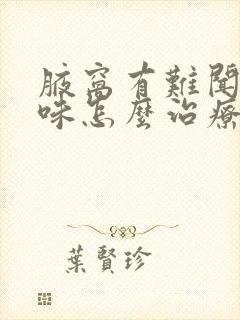 腋窩有難聞
味怎麼治療
葉賢珍